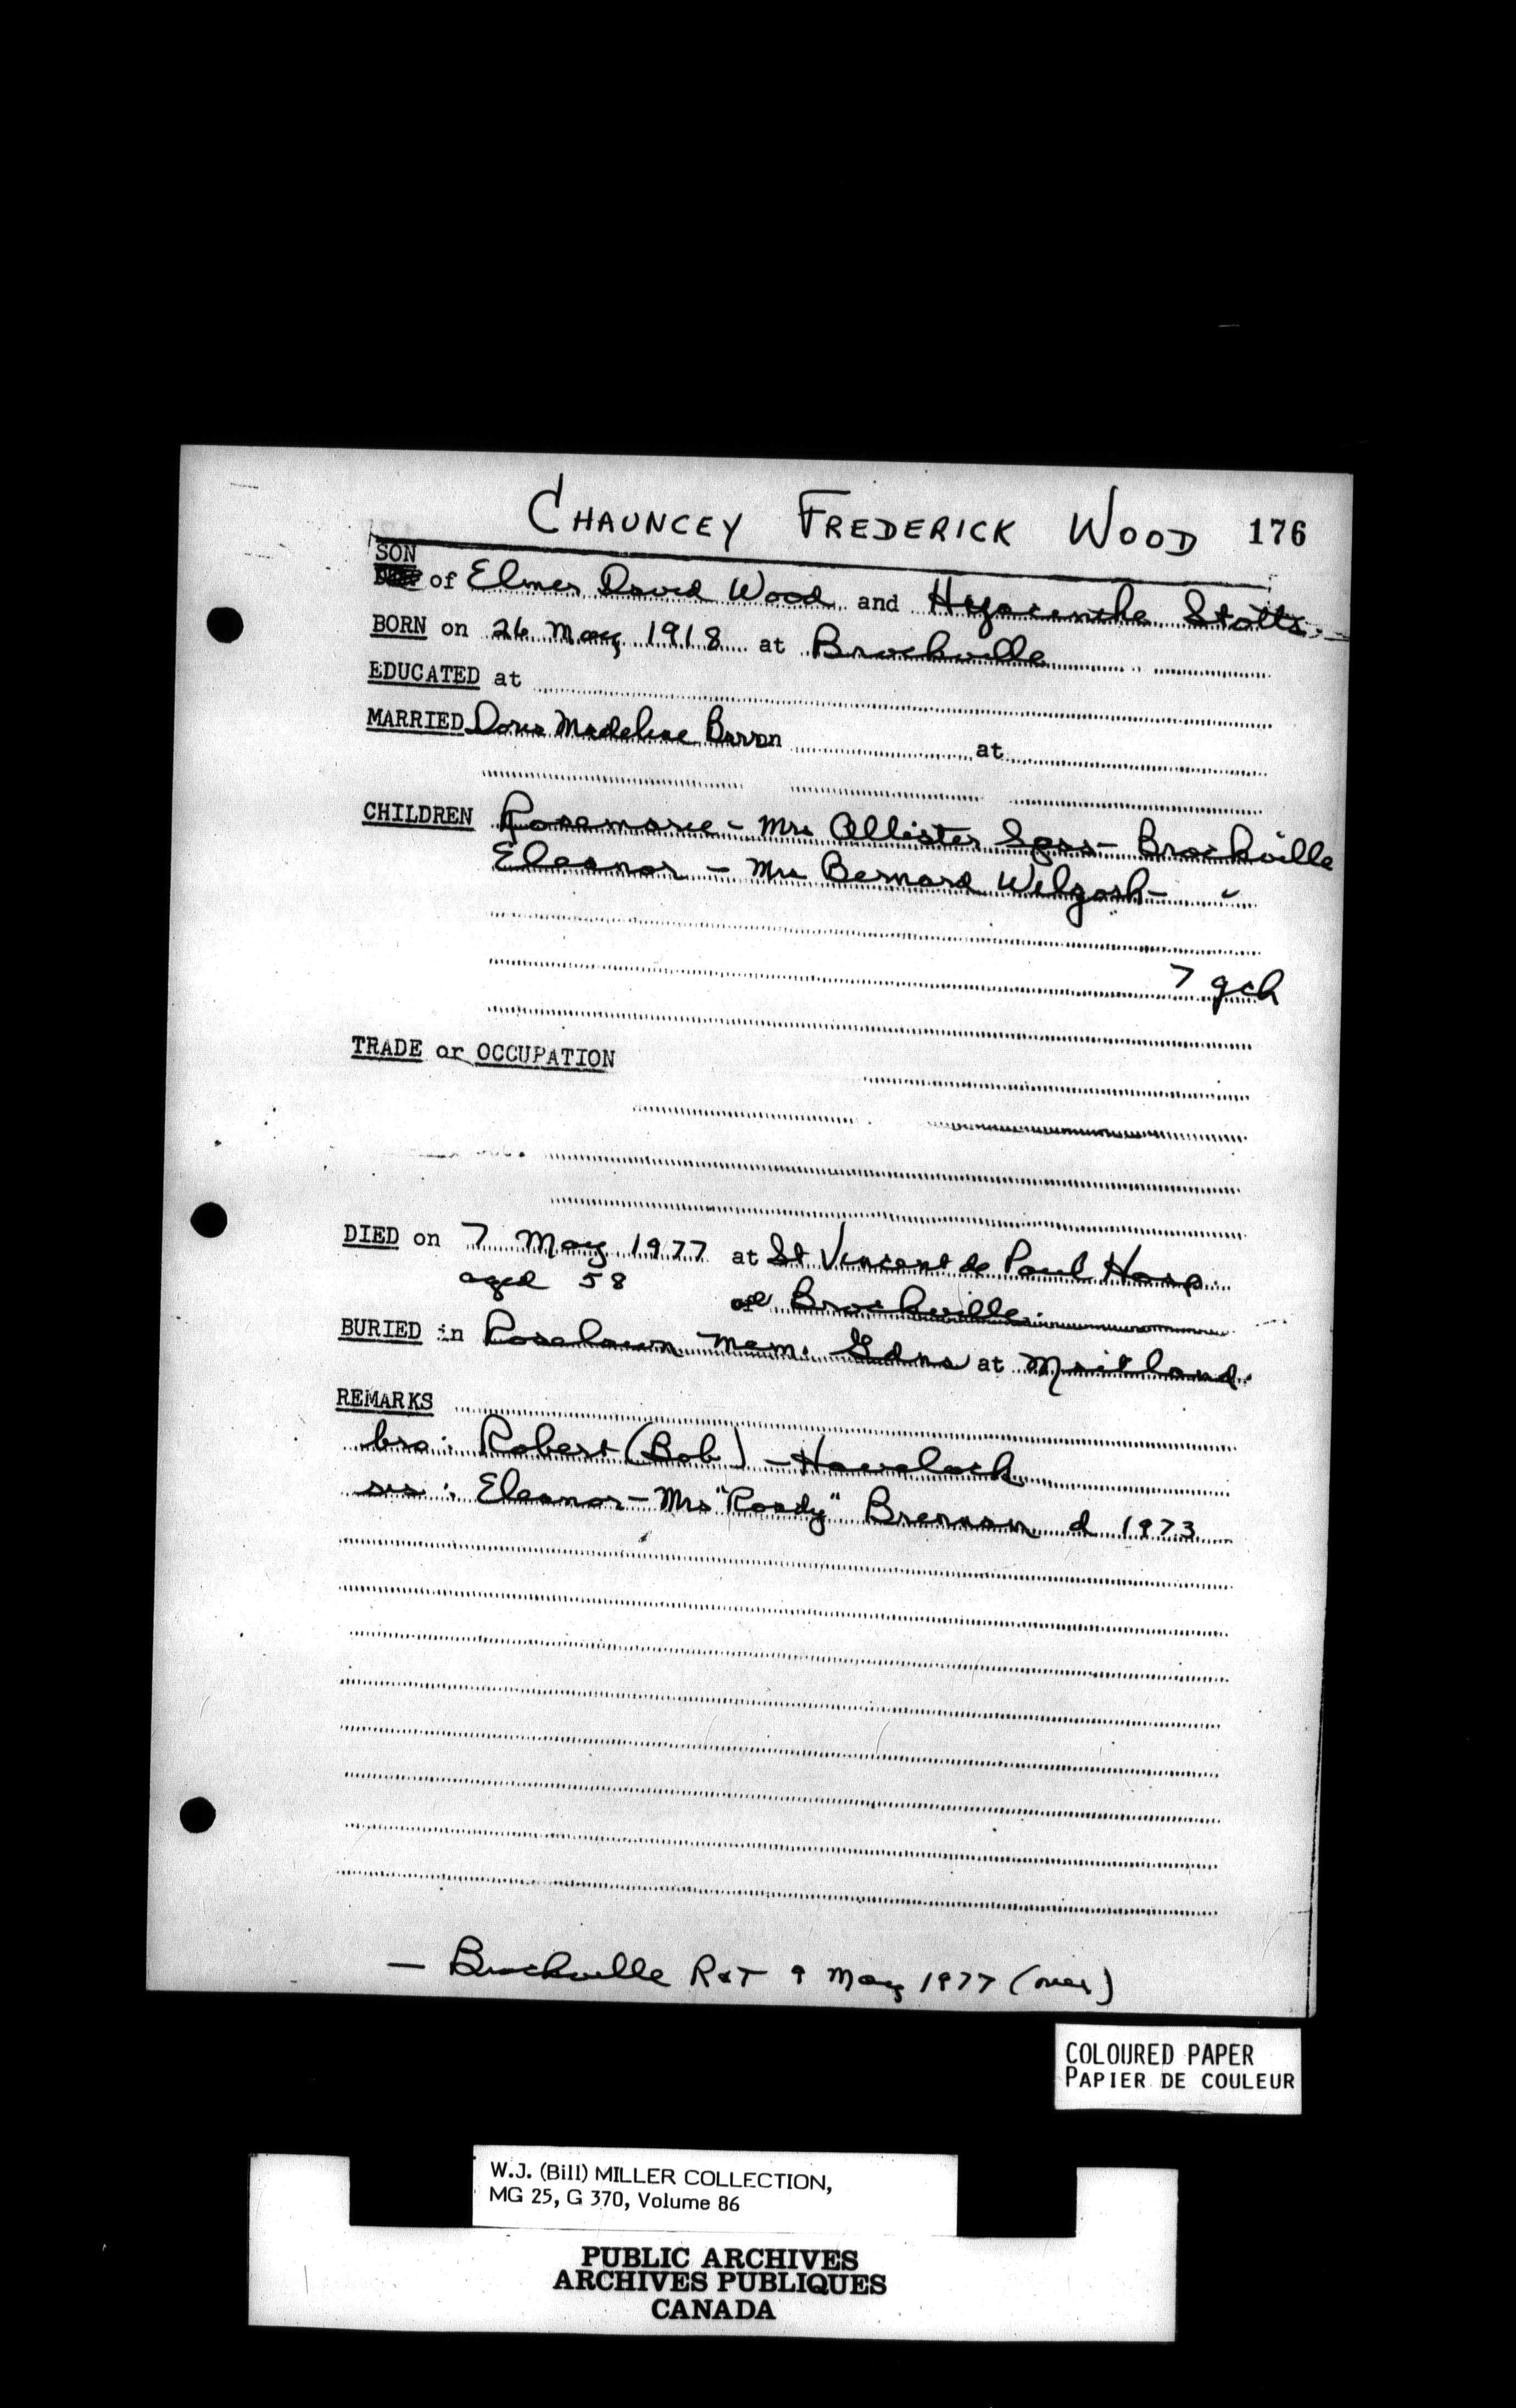 CHAUNCEY FREDERICK WOOD 176
SON
of Elmer David Wood and Hyacinthe Stotts
BORN on 26 May 1918 at Brockville
EDUCATED at
MARRIED Doris Madeline Barron at
CHILDREN Rosemarie - Mrs Allister Spss - Brockville
Eleanor - Mrs Bernard Welgosh - "
7 gch
TRADE or OCCUPATION
DIED on 7 May 1977 at St Vincent de Paul Hosp.
aged 58 Brockville
BURIED in Roselawn Mem. Gdns at Maitland.
REMARKS
bro: Robert (Bob) - Havelock
sis: Eleanor - Mrs "Roady" Brennan d 1973
- Brockville R&T 9 May 1977 (over)
COLOURED PAPER
PAPIER DE COULEUR
W.J. (Bill) MILLER COLLECTION,
MG 25, G 370, Volume 86
PUBLIC ARCHIVES
ARCHIVES PUBLIQUES
CANADA